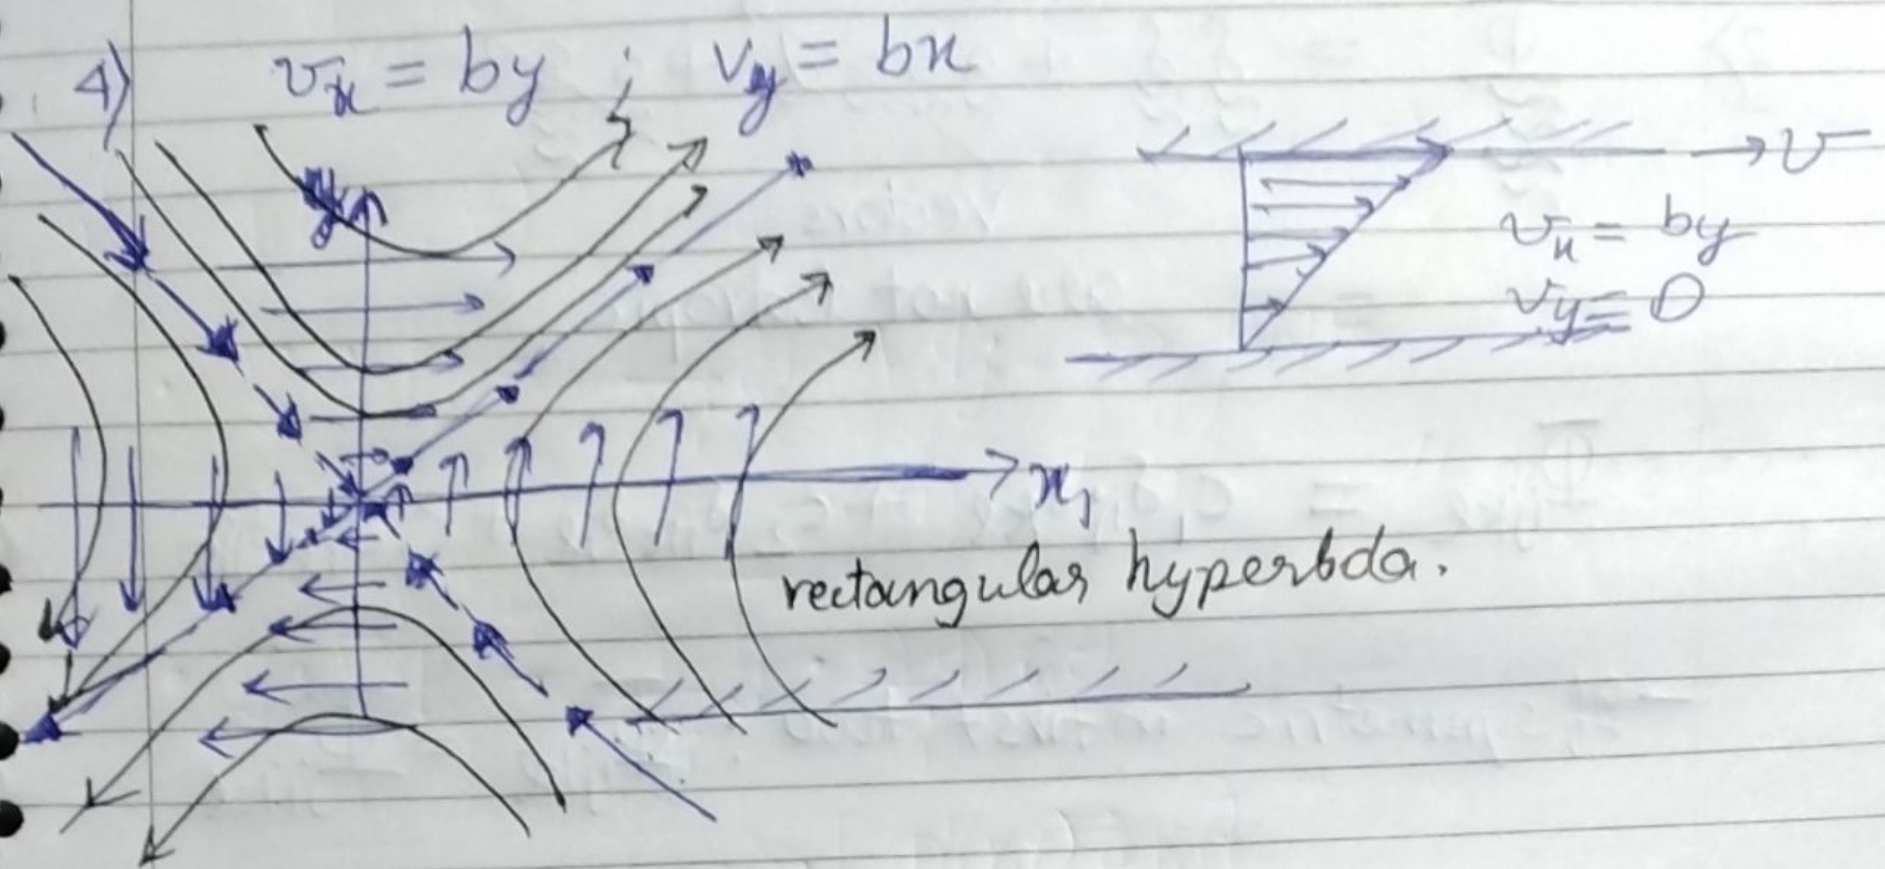 4) vx = by ; vy = bx
y
→ v
vx = by
vy = 0
x1
rectangular hyperbola.